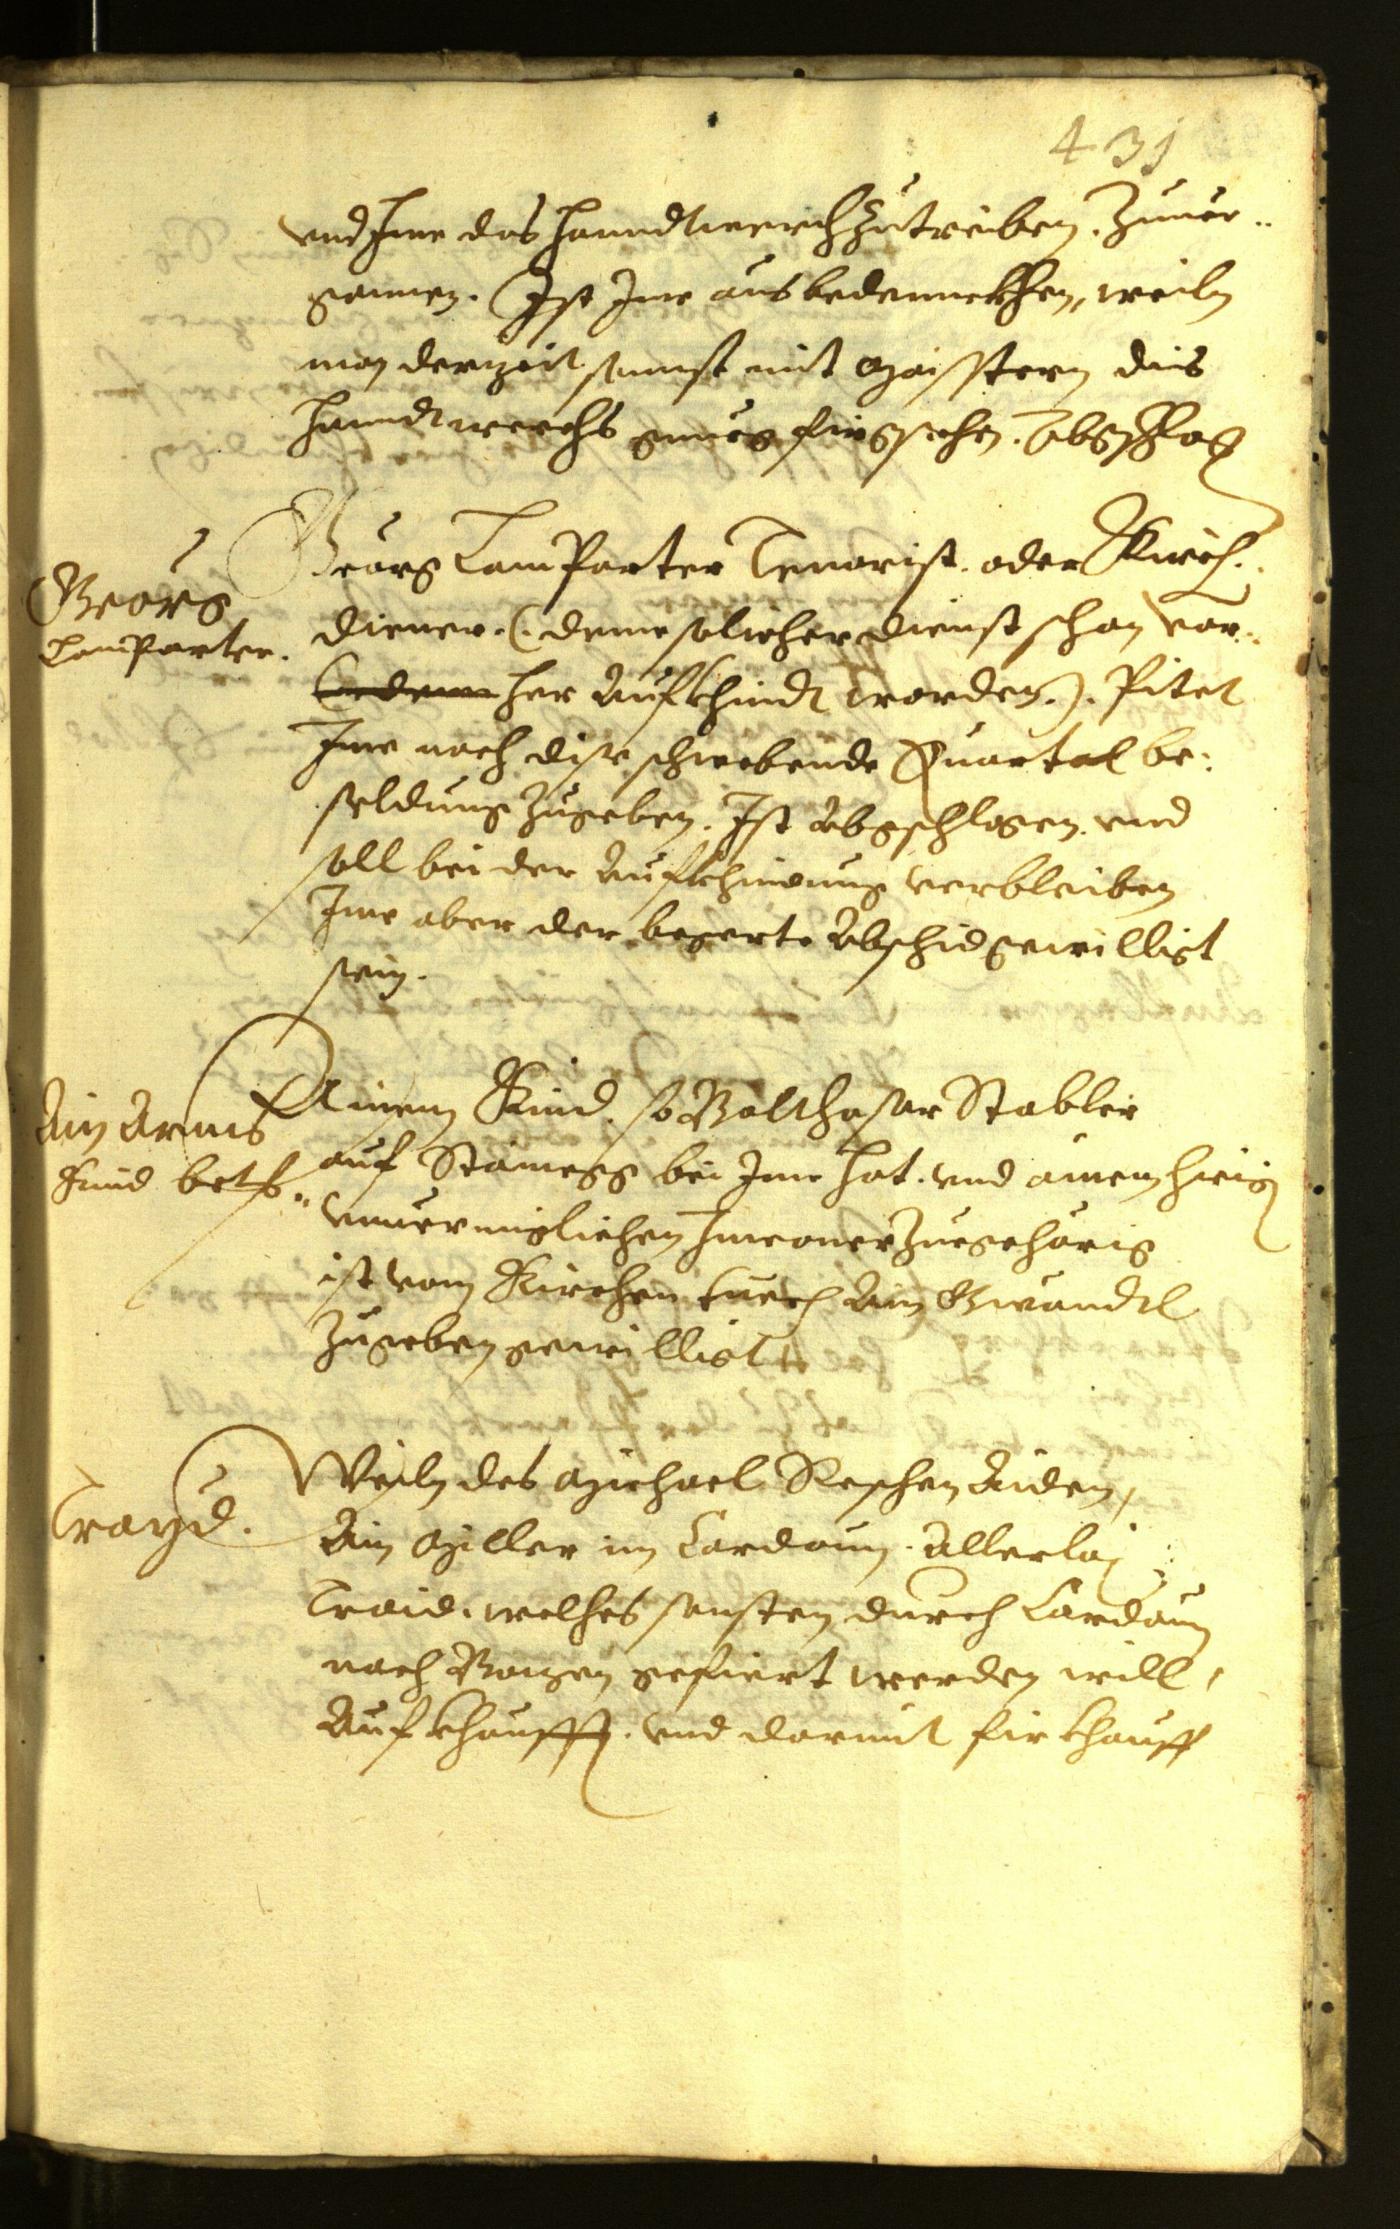 431
vnd Ime das Hanndtwerch zutreiben. Zuuer-
gonnen. Ist Ime aus bedennckhen, weiln
man derzeit sunst mit Maisstern dis
Hanndtwerchs gnueg firgsehen. Abgschlagen
Georg
LamParter.
Georg LamParter Tenorist. oder Kirch-
diener. (: deme solicher dienst schon vor-
her Aufkhindt worden.:) Pitet
Ime noch dise schwebende Quartal be-
soldung Zugeben. Ist Abgschlagen. vnd
soll bei der Aufkhindung verbleiben
Ime aber der begerte Abschid gewilligt
sein.
Ain Armes
Kind betr.
Ainem Kind. so Balthasar Stabler
auf Stamegg bei Ime hat. vnd ainem hieigen
vnuermiglichen Inwoner Zuegehörig
ist vom Kirchen tuech Ain Gwandtl
Zugeben gewilligt
Trayd.
Weiln des Michael Reschen Aiden,
Ain Miller im Cardaun. Allerlai
Traid. welches sonsten durch Cardaun
nach Bozen gefiert werden will,
Aufkhaufft. vnd darmit firkhauff